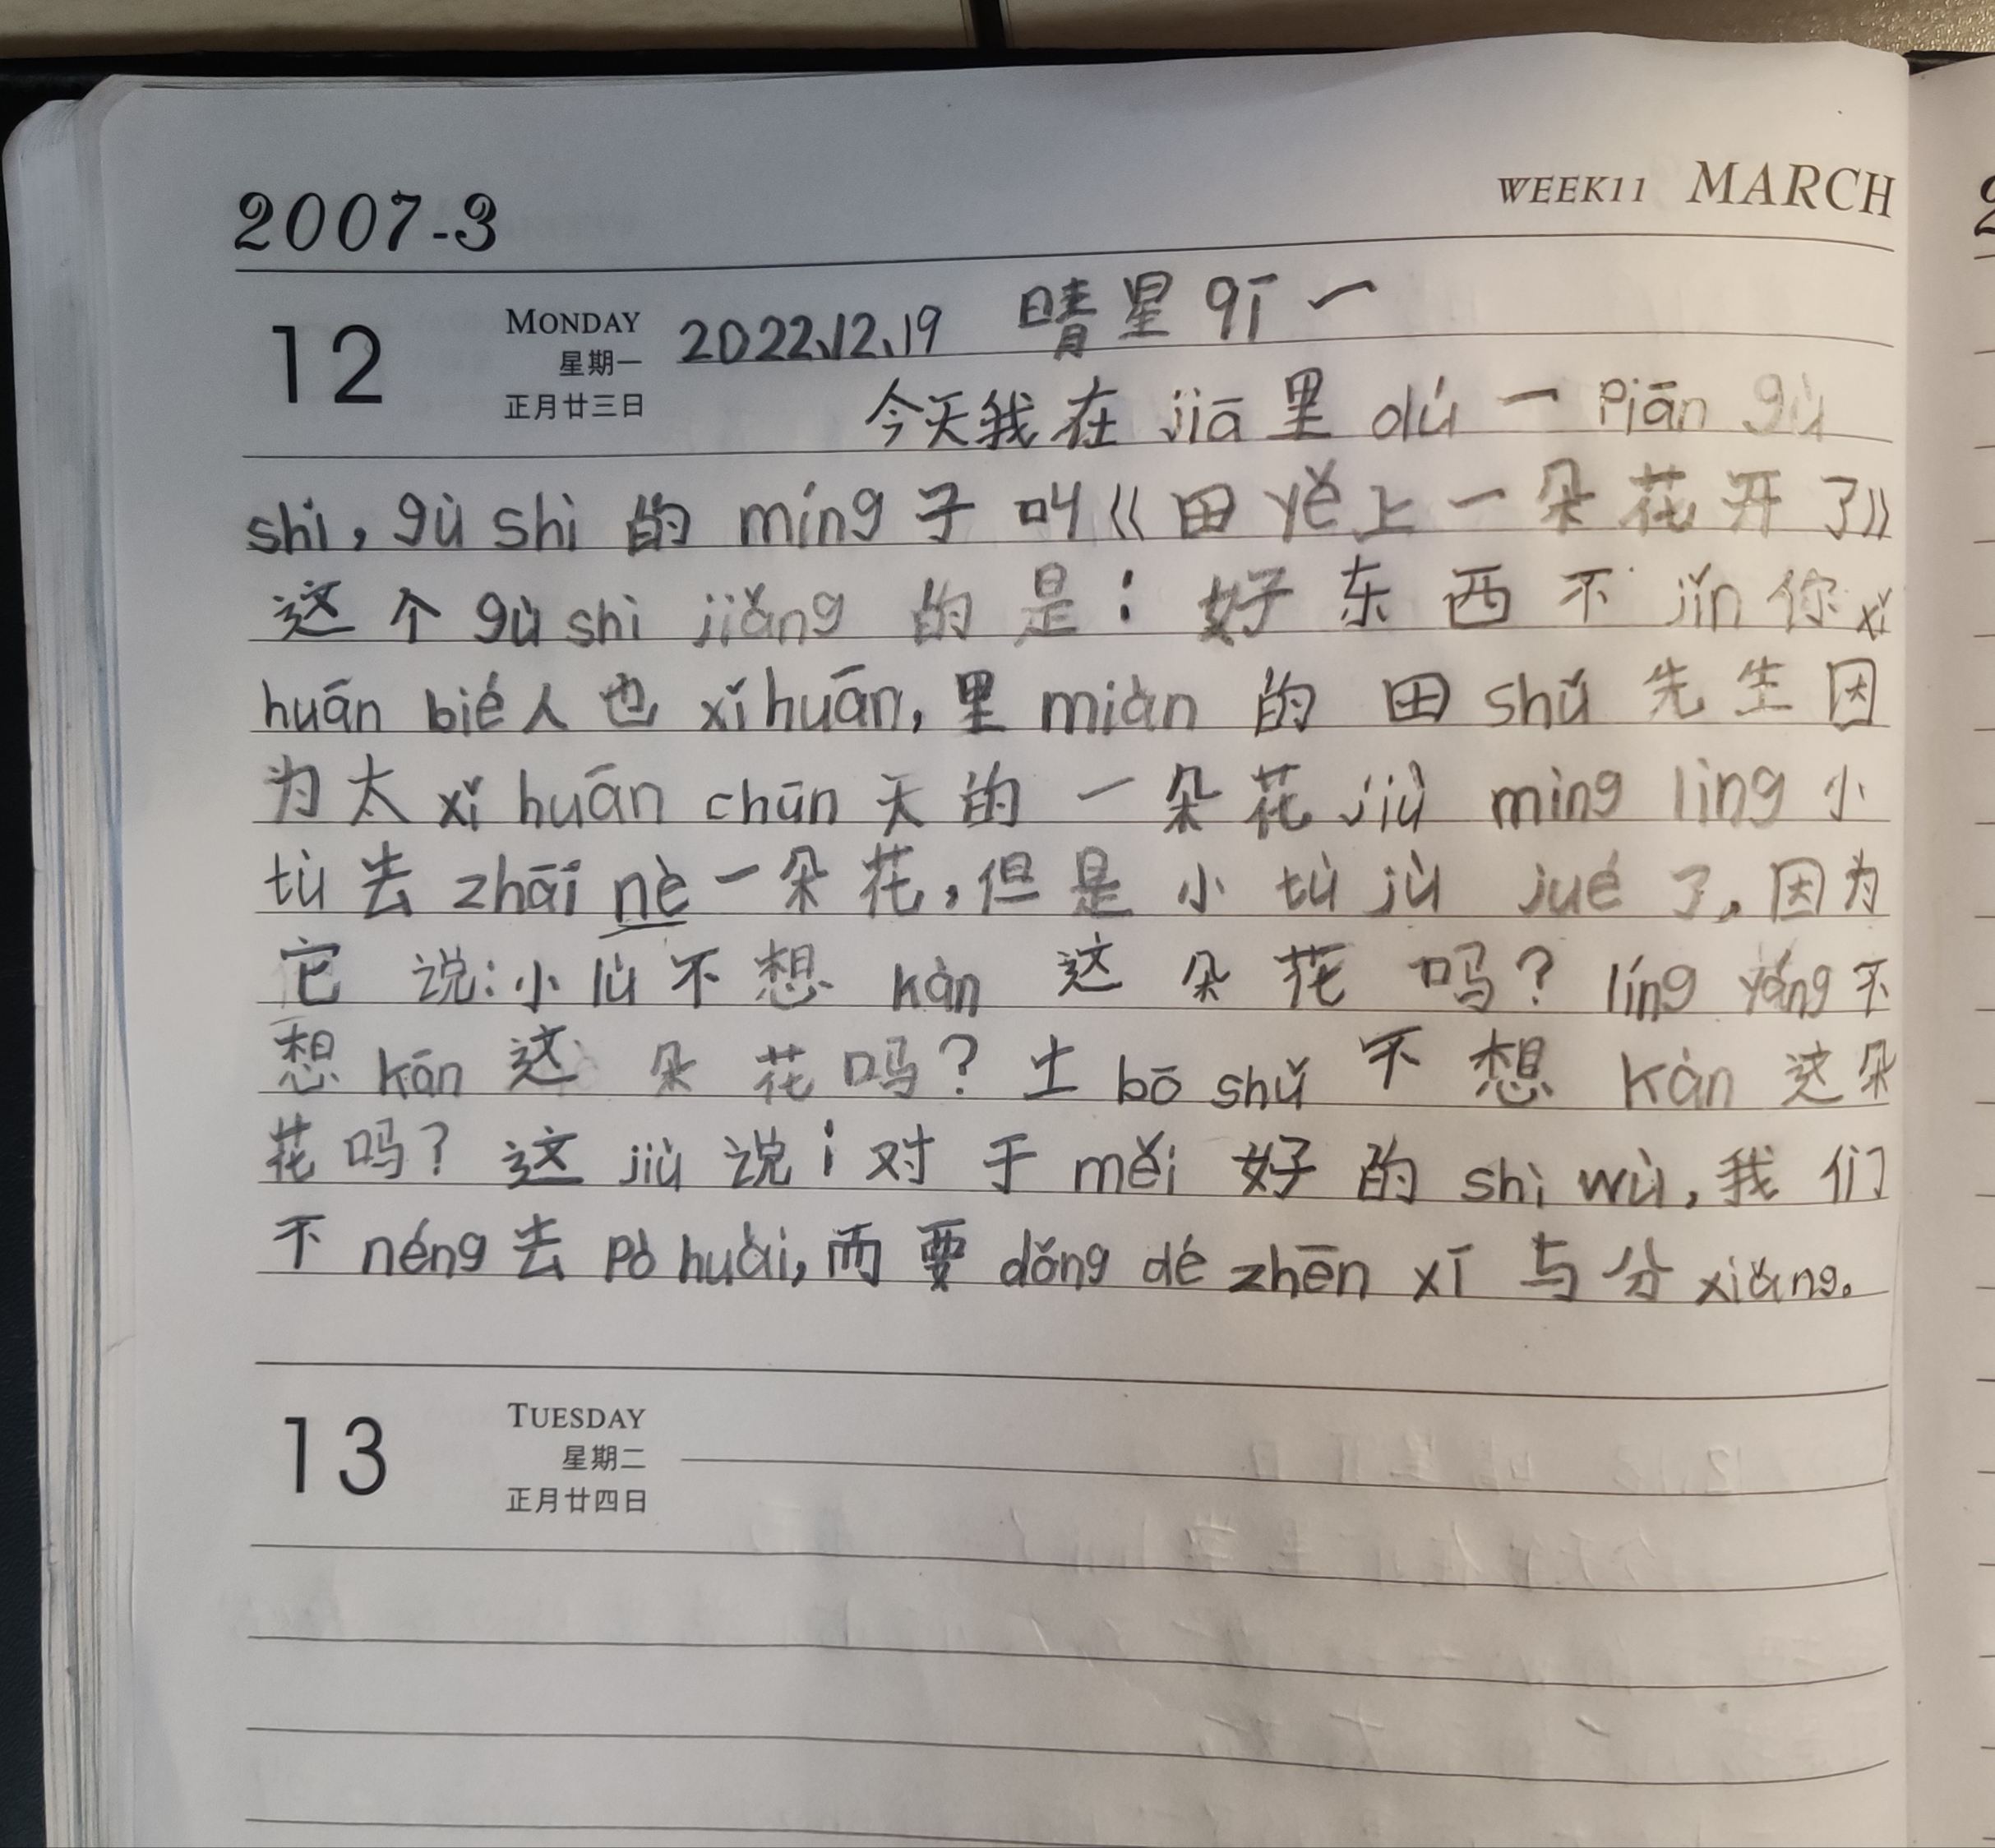 2007-3 WEEK11 MARCH
12 MONDAY 星期一 正月廿三日
2022、12、19 晴 星 qī 一
今天我在 jiā 里 dú 一 Piān gù
shi，gù shì 的 míng 子 叫《田 yě 上 一 朵 花 开 了》
这 个 gù shì jiǎng 的 是：好 东 西 不 jǐn 你 xǐ
huān bié 人 也 xǐ huān，里 miàn 的 田 shǔ 先 生 因
为 太 xǐ huān chūn 天 的 一 朵 花 jiù mìng lìng 小
tù 去 zhāi nè 一 朵 花，但 是 小 tù jù jué 了，因为
它 说：小 lù 不 想 kàn 这 朵 花 吗？líng yáng 不
想 kān 这 朵 花 吗？土 bō shǔ 不 想 kàn 这 朵
花 吗？这 jiù 说：对 于 měi 好 的 shì wù，我 们
不 néng 去 pò huài，而 要 dǒng dé zhēn xī 与 分 xiǎng。
13 TUESDAY 星期二 正月廿四日